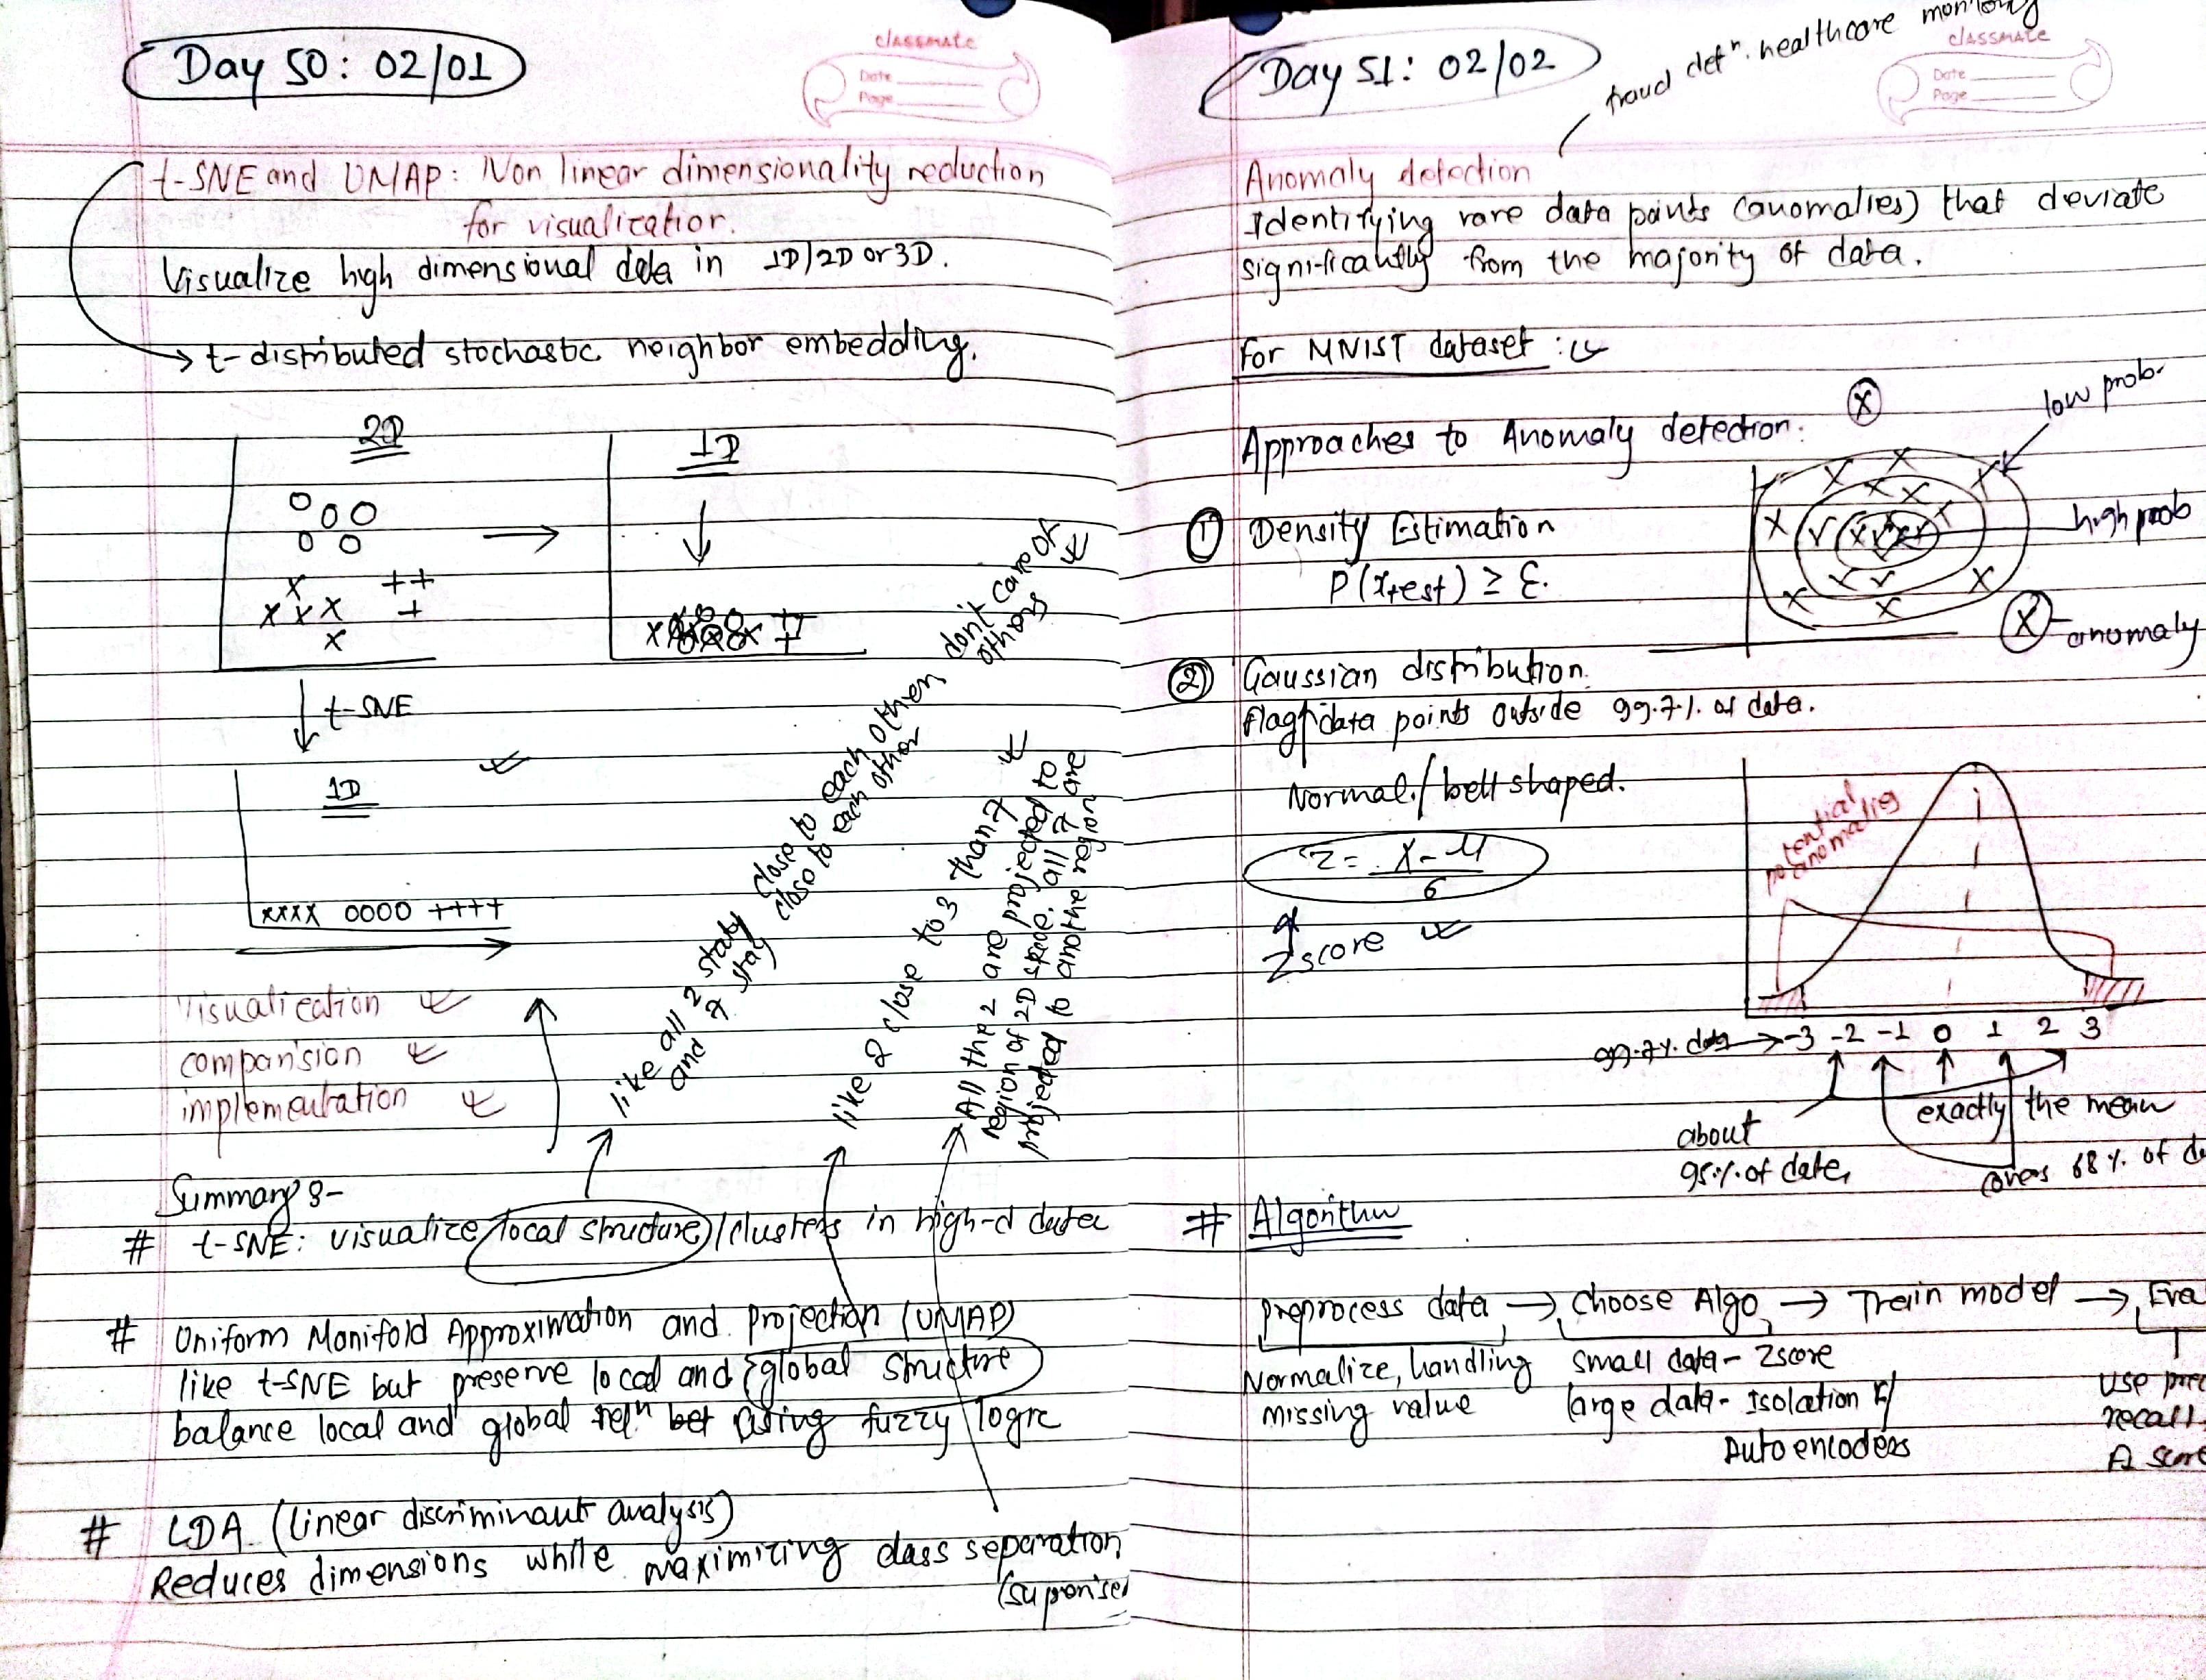 Day 50: 02/01
classmate
Date
Page
t-SNE and UMAP: Non linear dimensionality reduction
for visualization.
Visualize high dimensional data in 1D/2D or 3D.
t-distributed stochastic neighbor embedding.
2D
1D
t-SNE
1D
xxxx oooo ++++
visualization
comparision
implementation
like all 2 stay close to each other
and 7 stay close to each other
don't care of
others
like 2 close to 3 than 7
All the 2 are projected to
region of 2D space, all 7 are
projected to another region
Summary :-
# t-SNE: visualize local structure/clusters in high-d data
# Uniform Manifold Approximation and Projection (UMAP)
like t-SNE but preserve local and global structure
balance local and global reln bet using fuzzy logic
# LDA (linear discriminant analysis)
Reduces dimensions while maximizing class separation
Day 51: 02/02
fraud detn. healthcare monitoring
classmate
Date
Page
Anomaly detection
Identifying rare data points (anomalies) that deviate
significantly from the majority of data.
for MNIST dataset :
Approaches to Anomaly detection:
low prob.
high prob
anomaly
① Density Estimation
P(xtest) ≥ ε.
② Gaussian distribution.
flag data points outside 99.7% of data.
Normal / bell shaped.
Z = X-μ / σ
Z score
potential
anomalies
99.7% data → -3 -2 -1 0 1 2 3
exactly the mean
about
95% of data
covers 68% of
# Algorithm
preprocess data → Choose Algo → Train model →
Normalize, handling
missing value
small data - Zscore
large data - Isolation F/
Autoencoders
use
recall